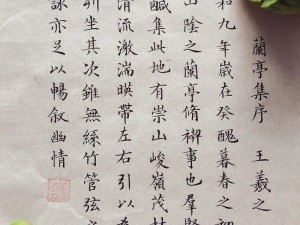 蘭亭集序 王羲之
和九年歲在癸醜暮春之初
山陰之蘭亭脩禊事也羣賢
鹹集此地有崇山峻嶺茂林
清流激湍暎帶左右引以為
列坐其次雖無絲竹管弦之
詠亦足以暢敘幽情